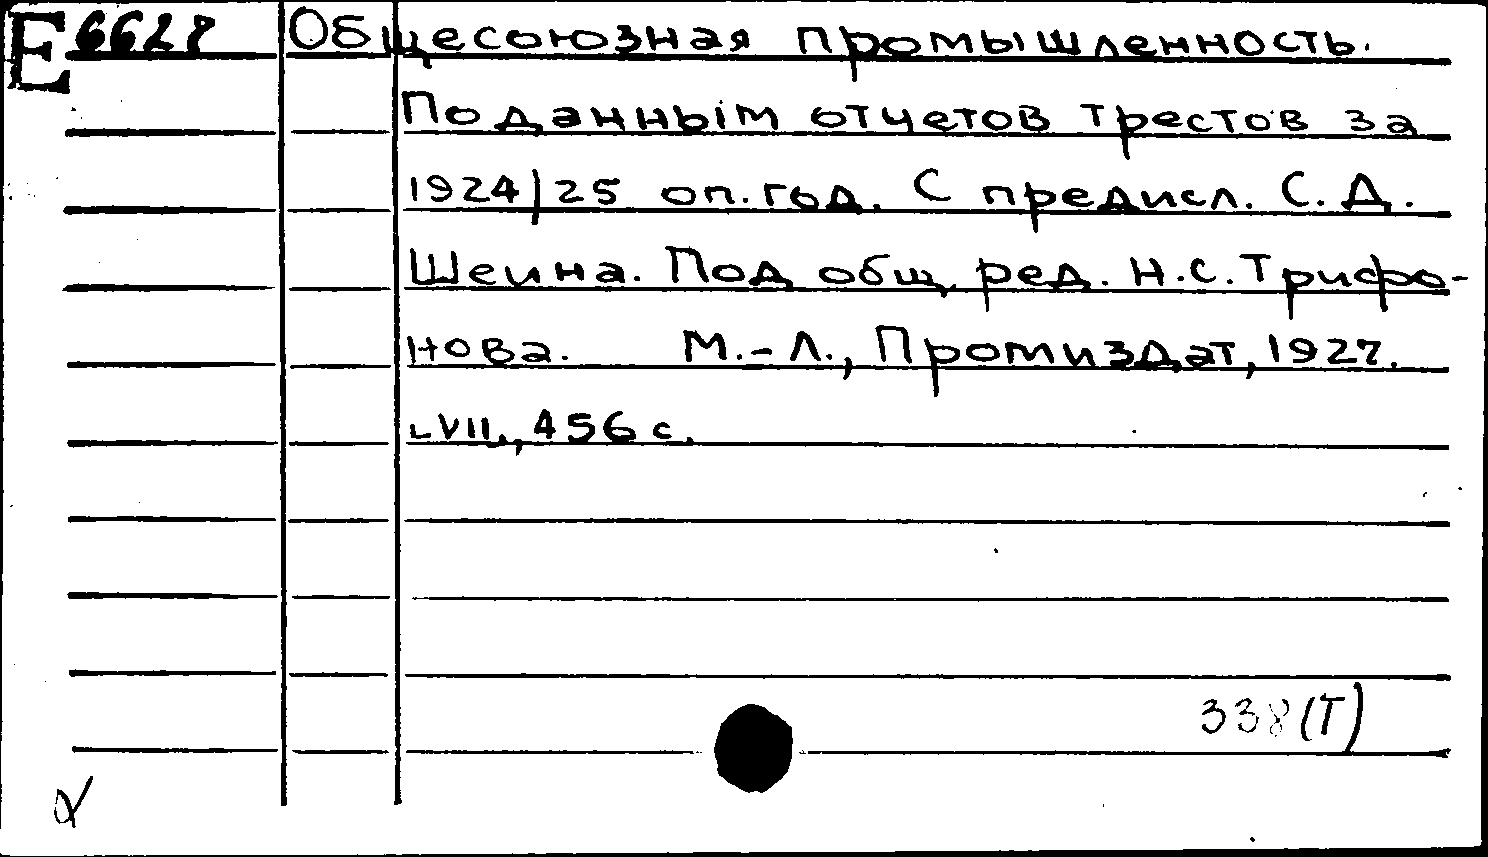 Е 6628 Общесоюзная промышленность.
По данным отчетов трестов за
1924/25 оп. год. С предисл. С. Д.
Шеина. Под общ. ред. Н.С. Трифо-
нова. М.-Л., Промиздат, 1927.
LVII, 456 с.
338(Т)